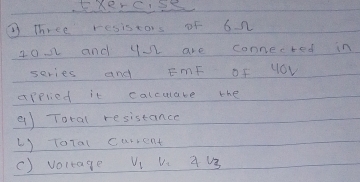 Exercise
1) Three resistors of 6Ω
10Ω and 4Ω are connected in
series and EMF of 40V
applied it calculate the
a) Total resistance
b) Total Current
c) Voltage V1 V2 & V3